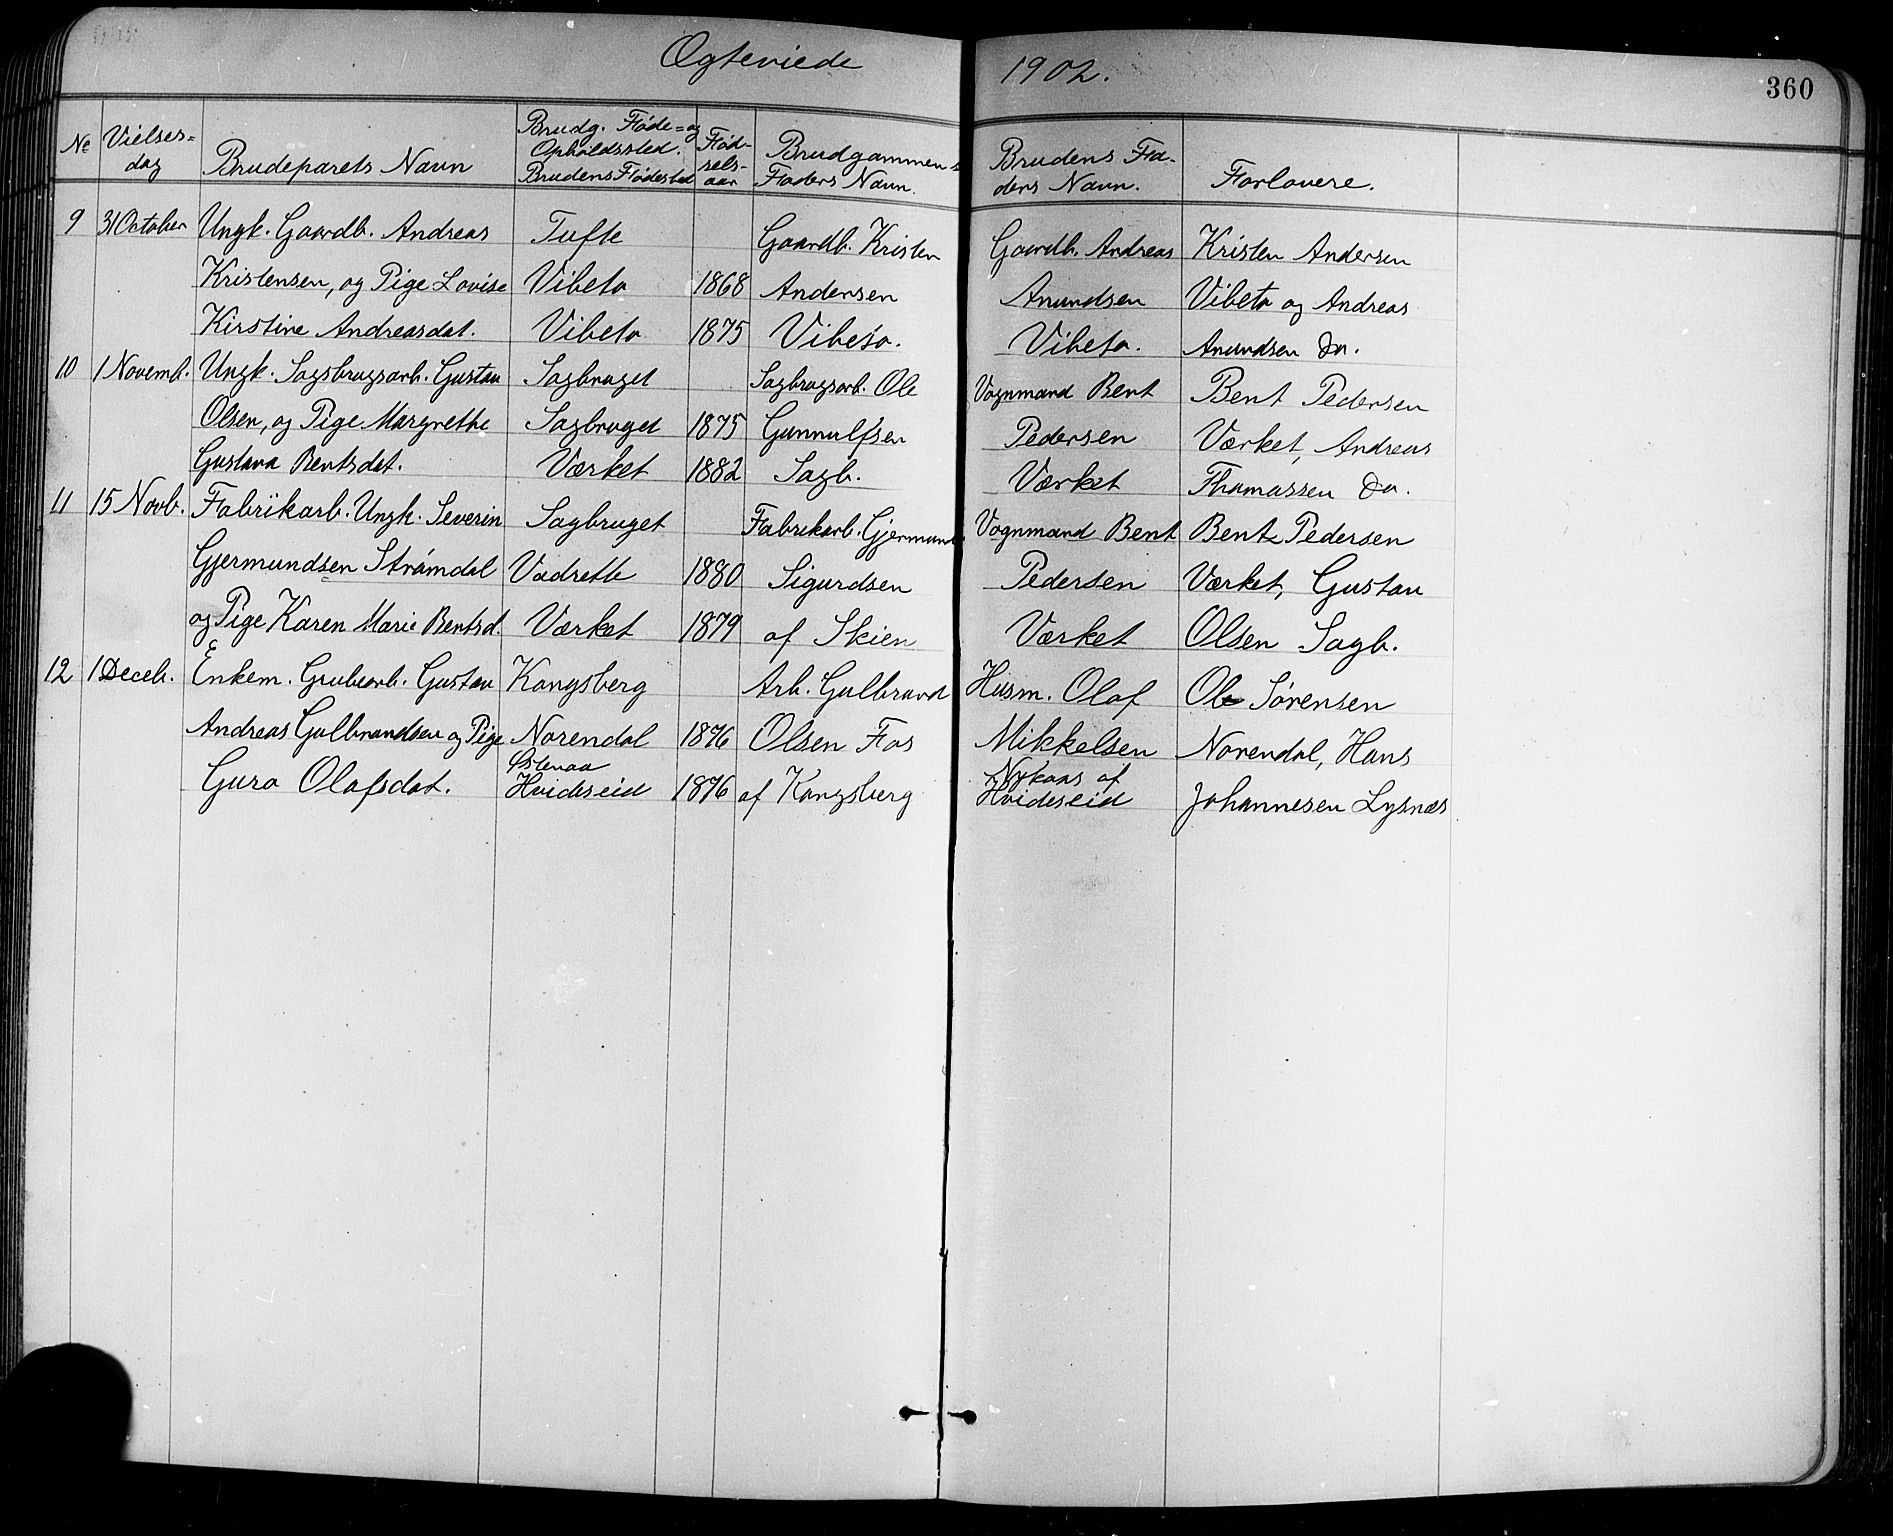 Ægteviede 1902.
360
No Vielses=dag Brudeparets Navn Brudg. Føde= og Opholdssted. Brudens Fødested Fød-sels-aar Brudgommens Faders Navn. Brudens Fa-ders Navn. Forlovere.
9 31 October Ungk. Gaardb. Andreas Tufte Gaardb. Kristen Gaardb. Andreas Kristen Andersen
Kristensen, og Pige Lovise Vibeto 1868 Andersen Anundsen Vibeto og Andreas
Kirstine Andreasdat. Vibeto 1875 Vibeto. Vibeto. Anundsen Do.
10 1 Novemb. Ungk. Sagsbrugsarb. Gustav Sagbruget Sagbrugsarb. Ole Vognmand Bent Bent Pedersen
Olsen, og Pige Margrethe Sagbruget 1875 Gunnulfsen Pedersen Værket, Andreas
Gustava Bentsdat. Værket 1882 Sagb. Værket Thomassen Do.
11 15 Novb. Fabrikarb. Ungk. Severin Sagbruget Fabrikarb. Gjermund Vognmand Bent Bent Pedersen
Gjermundsen Strømdal Vadrette 1880 Sigurdsen Pedersen Værket, Gustav
og Pige Karen Marie Bentsd. Værket 1879 af Skien Værket Olsen Sagb.
12 1 Deceb. Enkem. Grubearb. Gustav Kongsberg Arb. Gulbrand Husm. Olaf Ole Sørensen
Andreas Gulbrandsen og Pige Norendal 1876 Olsen Fos Mikkelsen Norendal, Hans
Guro Olafsdat. Østenaa Hvideseid 1876 af Kongsberg Nykaas af Hvideseid Johannesen Lysnæs